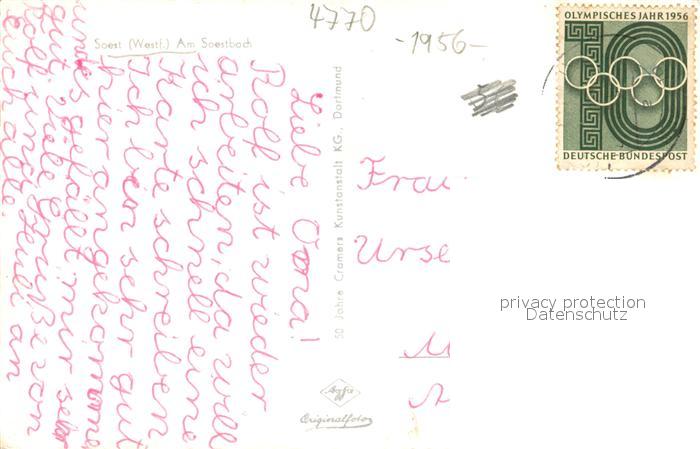 4770
-1956-
Soest (Westf.) Am Soestbach
OLYMPISCHES JAHR 1956
10
DEUTSCHE BUNDESPOST
Liebe Oma!
Rolf ist wieder
arbeiten, da will
ich schnell eine
Karte schreiben
Ich bin sehr gut
hier angekommen
und es gefällt mir sehr
gut. Viele Grüße von
Rolf und Heidi an
Euch alle.
50 Jahre Cramers Kunstanstalt KG., Dortmund
Frau
Urse
privacy protection
Datenschutz
Agfa
Originalfoto